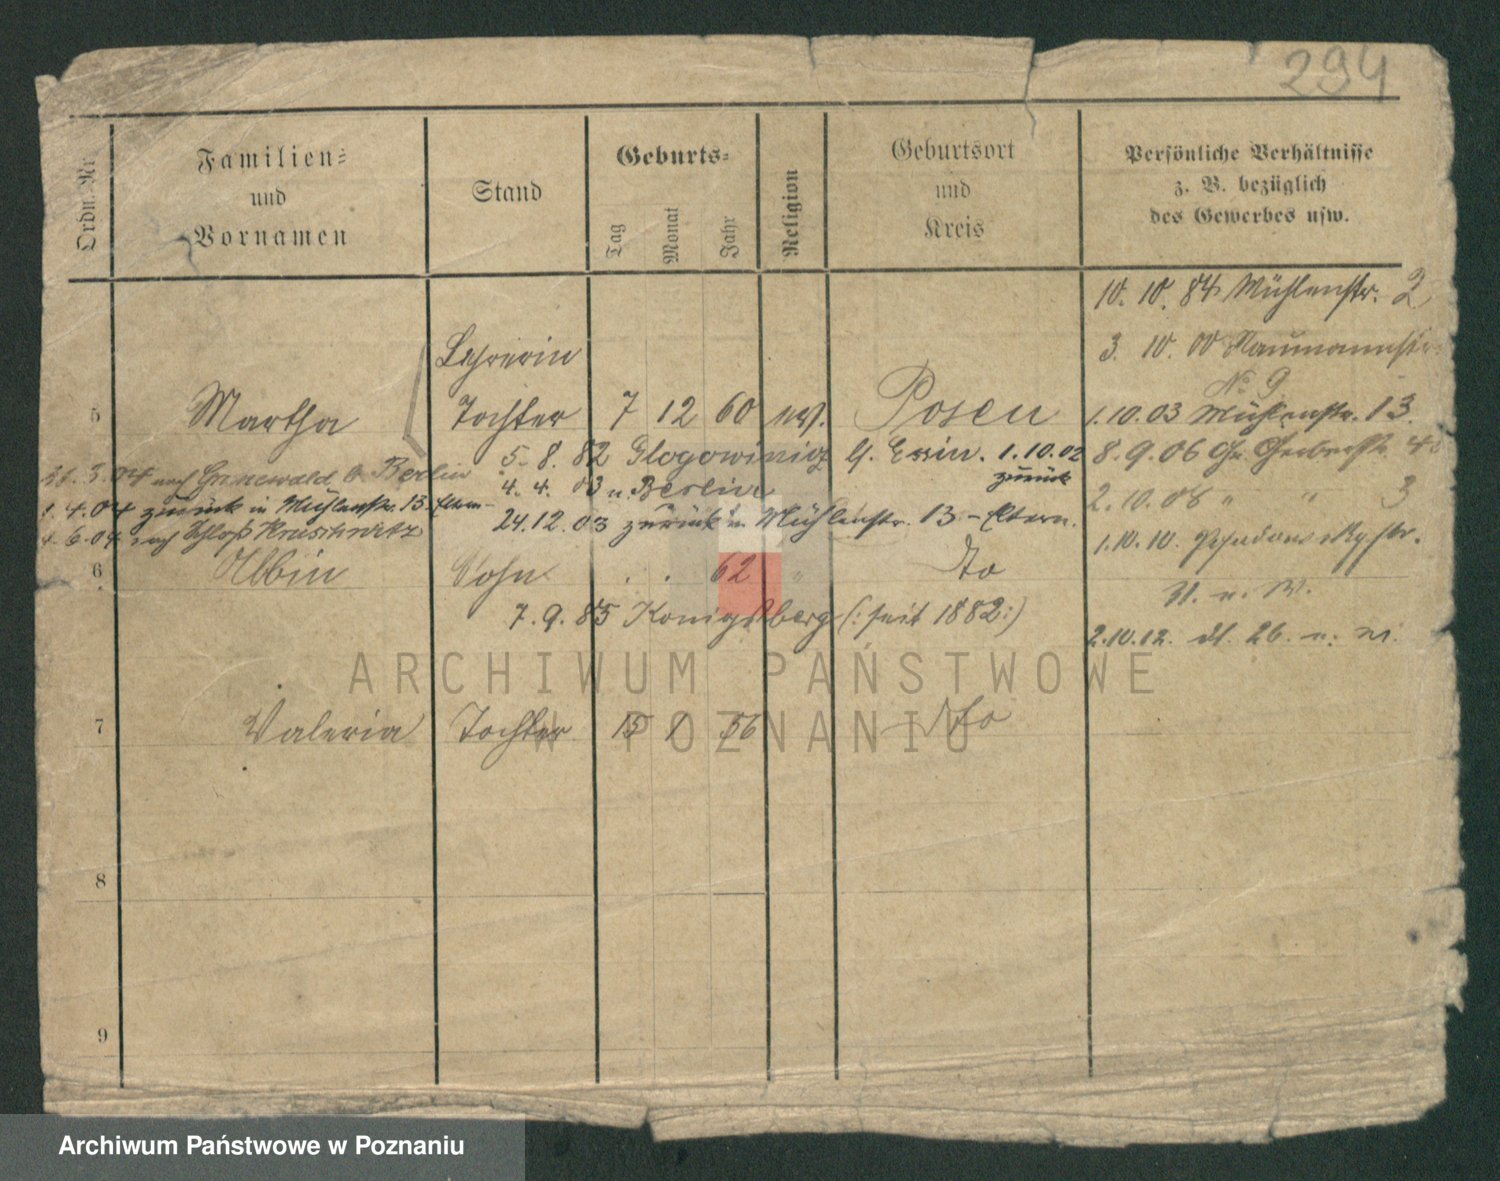 294
Ordn. Nr.
Familien=
und
Vornamen
Stand
Geburts=
Tag
Monat
Jahr
Religion
Geburtsort
und
Kreis
Persönliche Verhältnisse
z. B. bezüglich
des Gewerbes usw.
10. 10. 84 Mühlenstr. 2
3. 10. 00 Naumannstr.
No 9
Lehrerin
5 Martha Tochter 7 12 60 ev. Posen
1.10.03 Mühlenstr. 13.
5. 8. 82 Glogowiniec b. Exin. 1.10.02
zurück
8. 9. 06 Gr. Gerberstr. 4
31. 3. 04 nach Grunewald b. Berlin
4. 4. 03 n. Berlin
2. 10. 08 " " 3
1. 4. 04 zurück in Mühlenstr. 13. Eltern
24. 12. 03 zurück in Mühlenstr. 13 - Eltern.
4. 6. 04 nach Schloß
1. 10. 10.
6 Albin Sohn . . 62 " do
U. n. W.
7. 9. 85 Königsberg (: seit 1882 :)
2. 10. 12. 26.
ARCHIWUM PAŃSTWOWE
W POZNANIU
7 Valeria Tochter 15 1 56 do
8
9
Archiwum Państwowe w Poznaniu